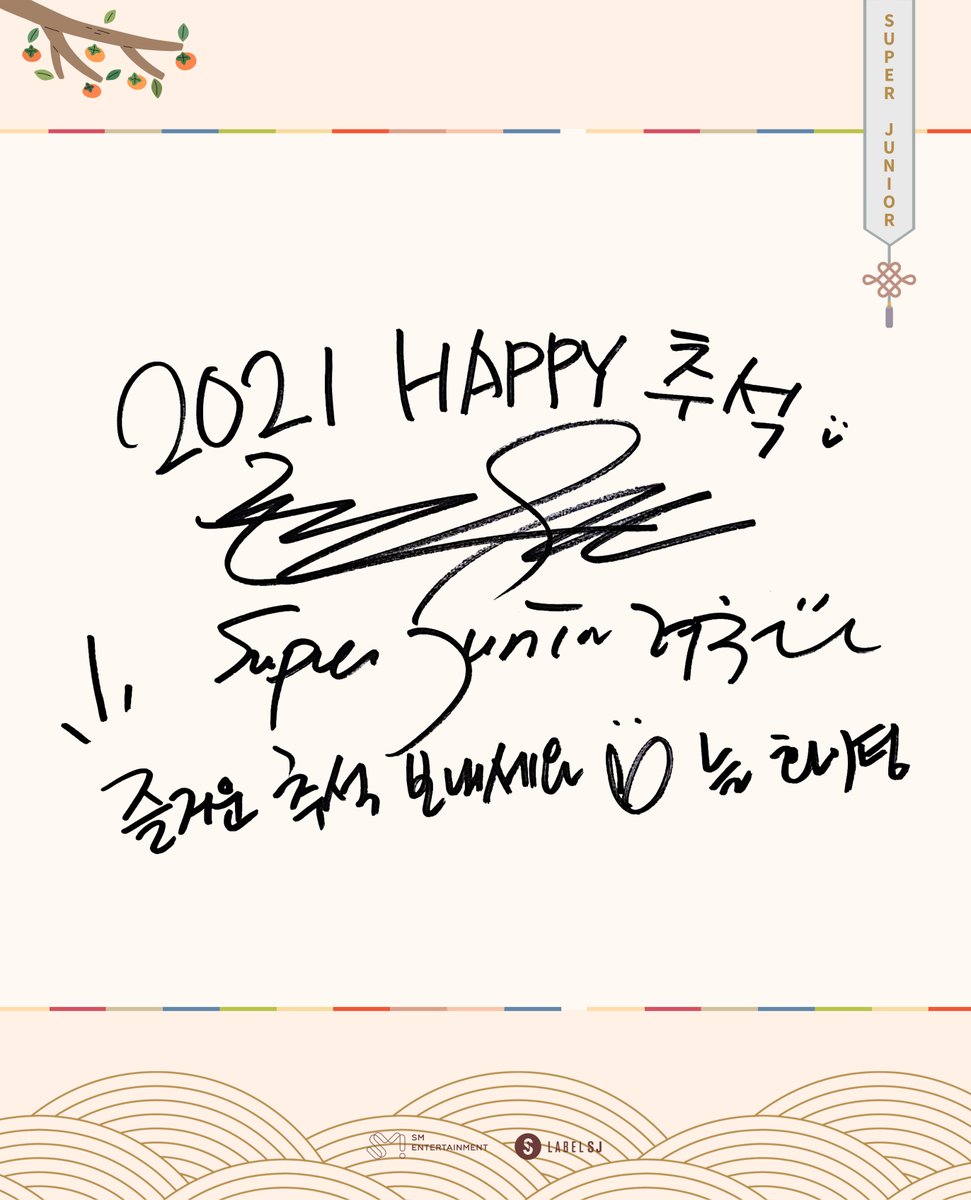 SUPER JUNIOR
2021 HAPPY 추석
Super Junior 려욱
즐거운 추석 보내세요 늘 화이팅
SM
ENTERTAINMENT
LABELSJ